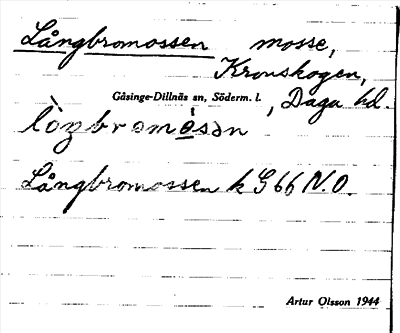 Långbromossen mosse,
Kronskogen,
Gåsinge-Dillnäs sn, Söderm. l. , Daga hd.
lòŋbromòsən
Långbromossen k G 66 N.O.
Artur Olsson 1944